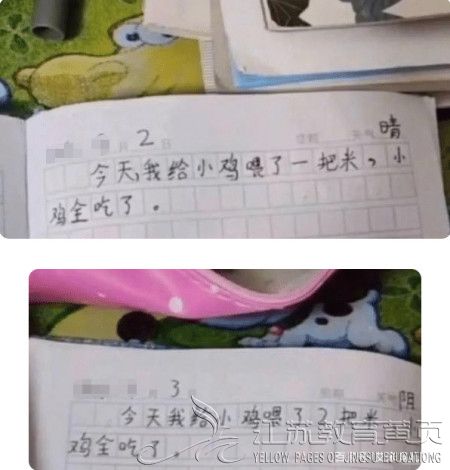 月 2 日 星期 天气 晴
今天，我给小鸡喂了一把米，小
鸡全吃了。
月 3 日 星期 天气 阴
今天我给小鸡喂了2把米
鸡全吃了。
江苏教育黄页
YELLOW PAGES OF JINGSU EDUCATIONG